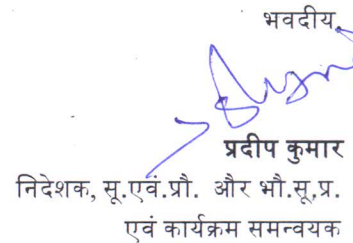 भवदीय,
प्रदीप कुमार
निदेशक, सू.एवं.प्रौ. और भौ.सू.प्र.
एवं कार्यक्रम समन्वयक